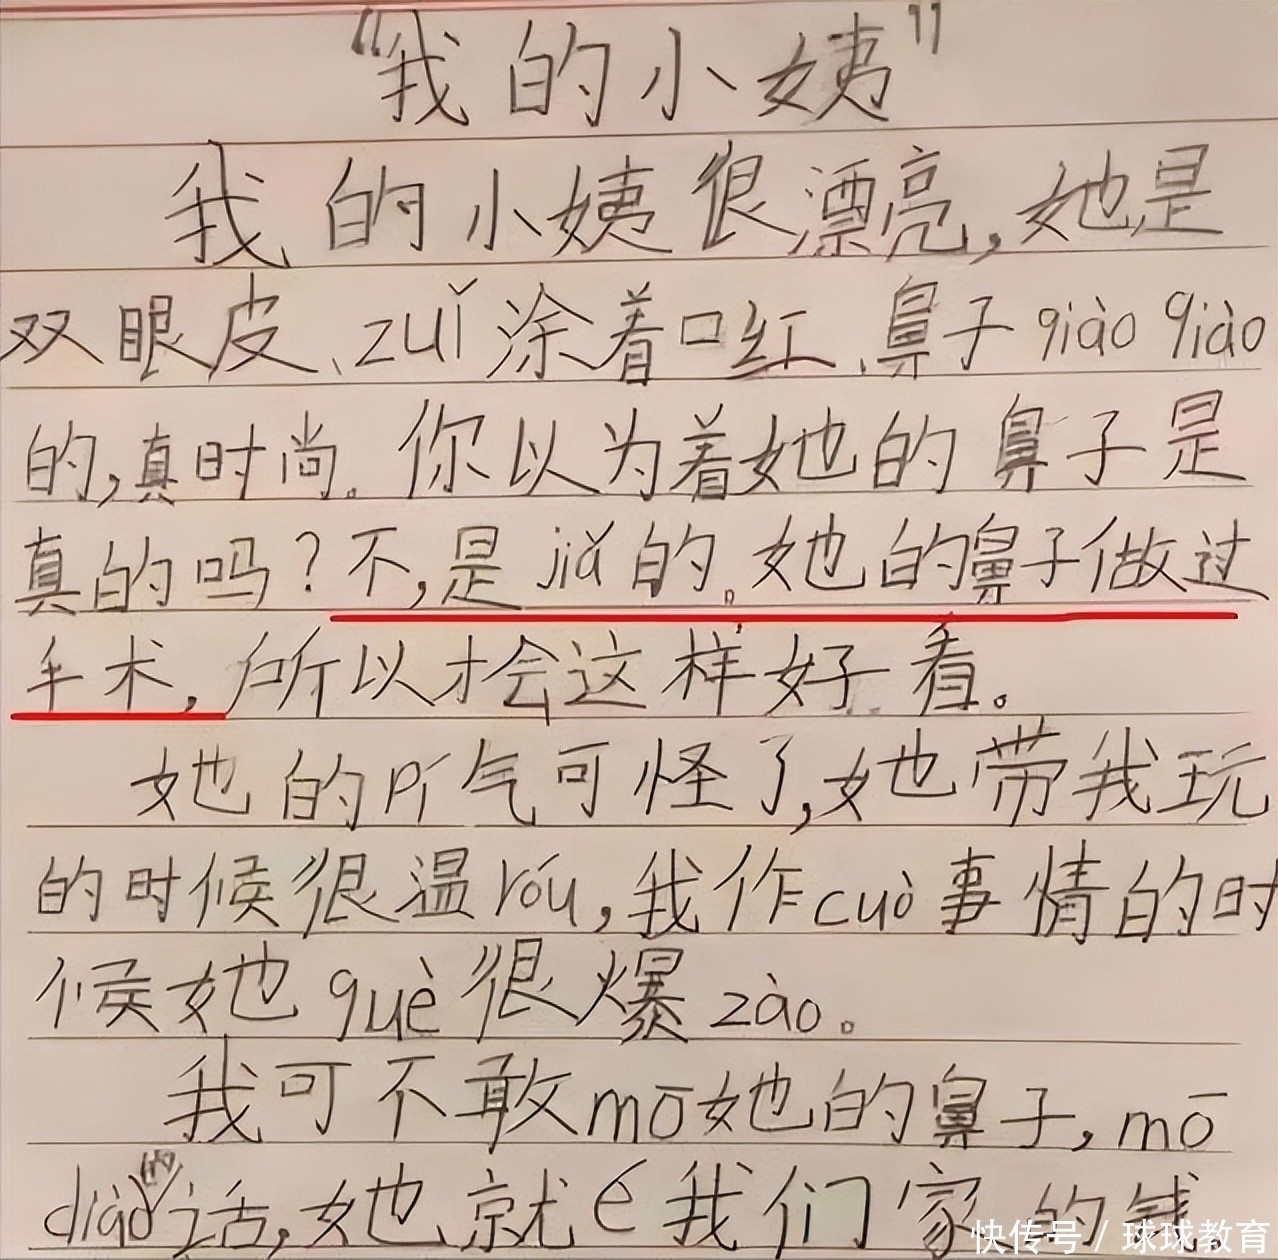 “我的小姨”
我的小姨很漂亮,她是
双眼皮、zuǐ涂着口红、鼻子qiào qiào
的,真时尚。你以为着她的鼻子是
真的吗?不,是jiǎ的。她的鼻子做过
手术,所以才会这样好看。
她的pí气可怪了,她带我玩
的时候很温róu,我作cuò事情的时
候她què很爆zào。
我可不敢mō她的鼻子,mō
diào的话,她就é我们家的钱
快传号/球球教育